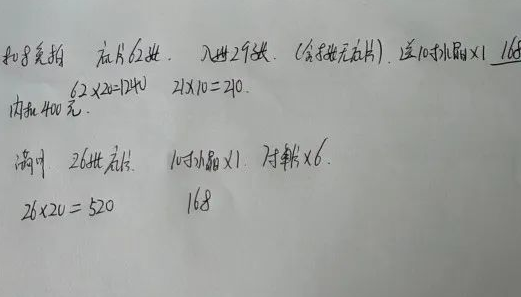 底片62张. 入册29张. (含 张无底片). 送10寸水晶×1 168
62×20=1240 21×10=210.
内扣400元.
26张底片. 10寸水晶×1. 7寸单片×6.
26×20=520 168